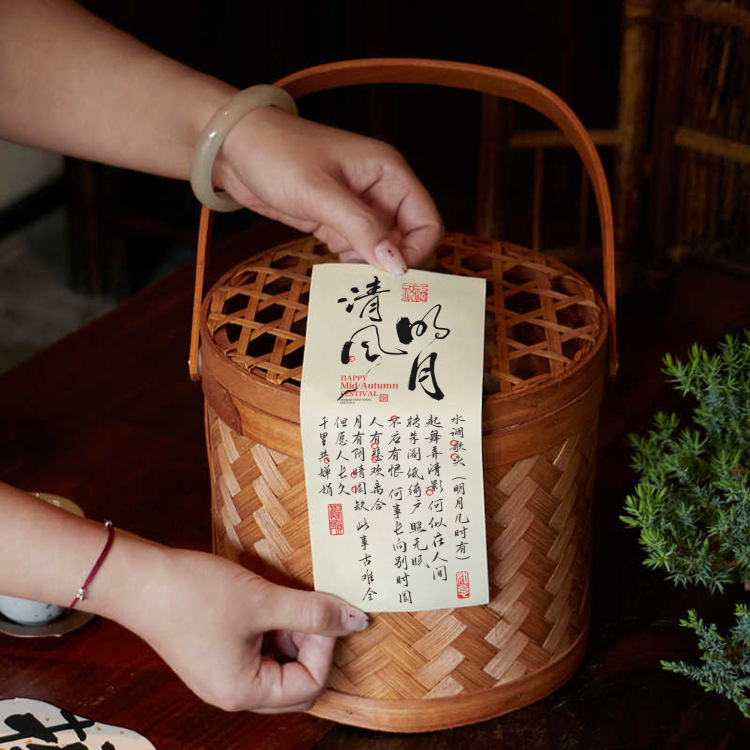 明月
清风
HAPPY
Mid-Autumn
FESTIVAL
水调歌头（明月几时有）
起舞弄清影何似在人间
转朱阁低绮户照无眠
不应有恨 何事长向别时圆
人有悲欢离合
月有阴晴圆缺 此事古难全
但愿人长久
千里共婵娟